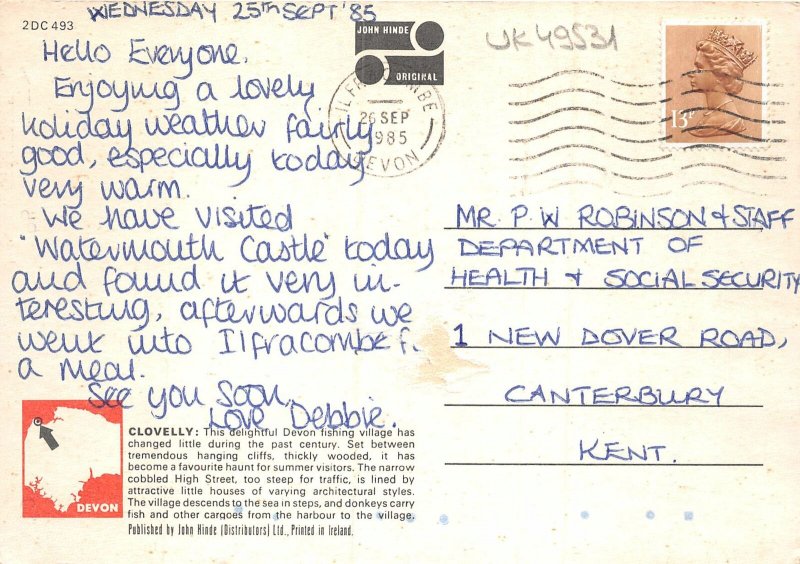 WEDNESDAY 25TH SEPT '85
2DC 493
Hello Everyone,
Enjoying a lovely
holiday weather fairly
good, especially today
very warm.
We have visited
"Watermouth Castle" today
and found it very in-
teresting, afterwards we
went into Ilfracombe f.
a meal.
See you soon,
Love Debbie.
JOHN HINDE
ORIGINAL
UK49531
ILFRACOMBE
26 SEP
1985
DEVON
13P
MR. P. W ROBINSON & STAFF
DEPARTMENT OF
HEALTH & SOCIAL SECURITY
1 NEW DOVER ROAD,
CANTERBURY
KENT.
DEVON
CLOVELLY: This delightful Devon fishing village has
changed little during the past century. Set between
tremendous hanging cliffs, thickly wooded, it has
become a favourite haunt for summer visitors. The narrow
cobbled High Street, too steep for traffic, is lined by
attractive little houses of varying architectural styles.
The village descends to the sea in steps, and donkeys carry
fish and other cargoes from the harbour to the village.
Published by John Hinde (Distributors) Ltd., Printed in Ireland.